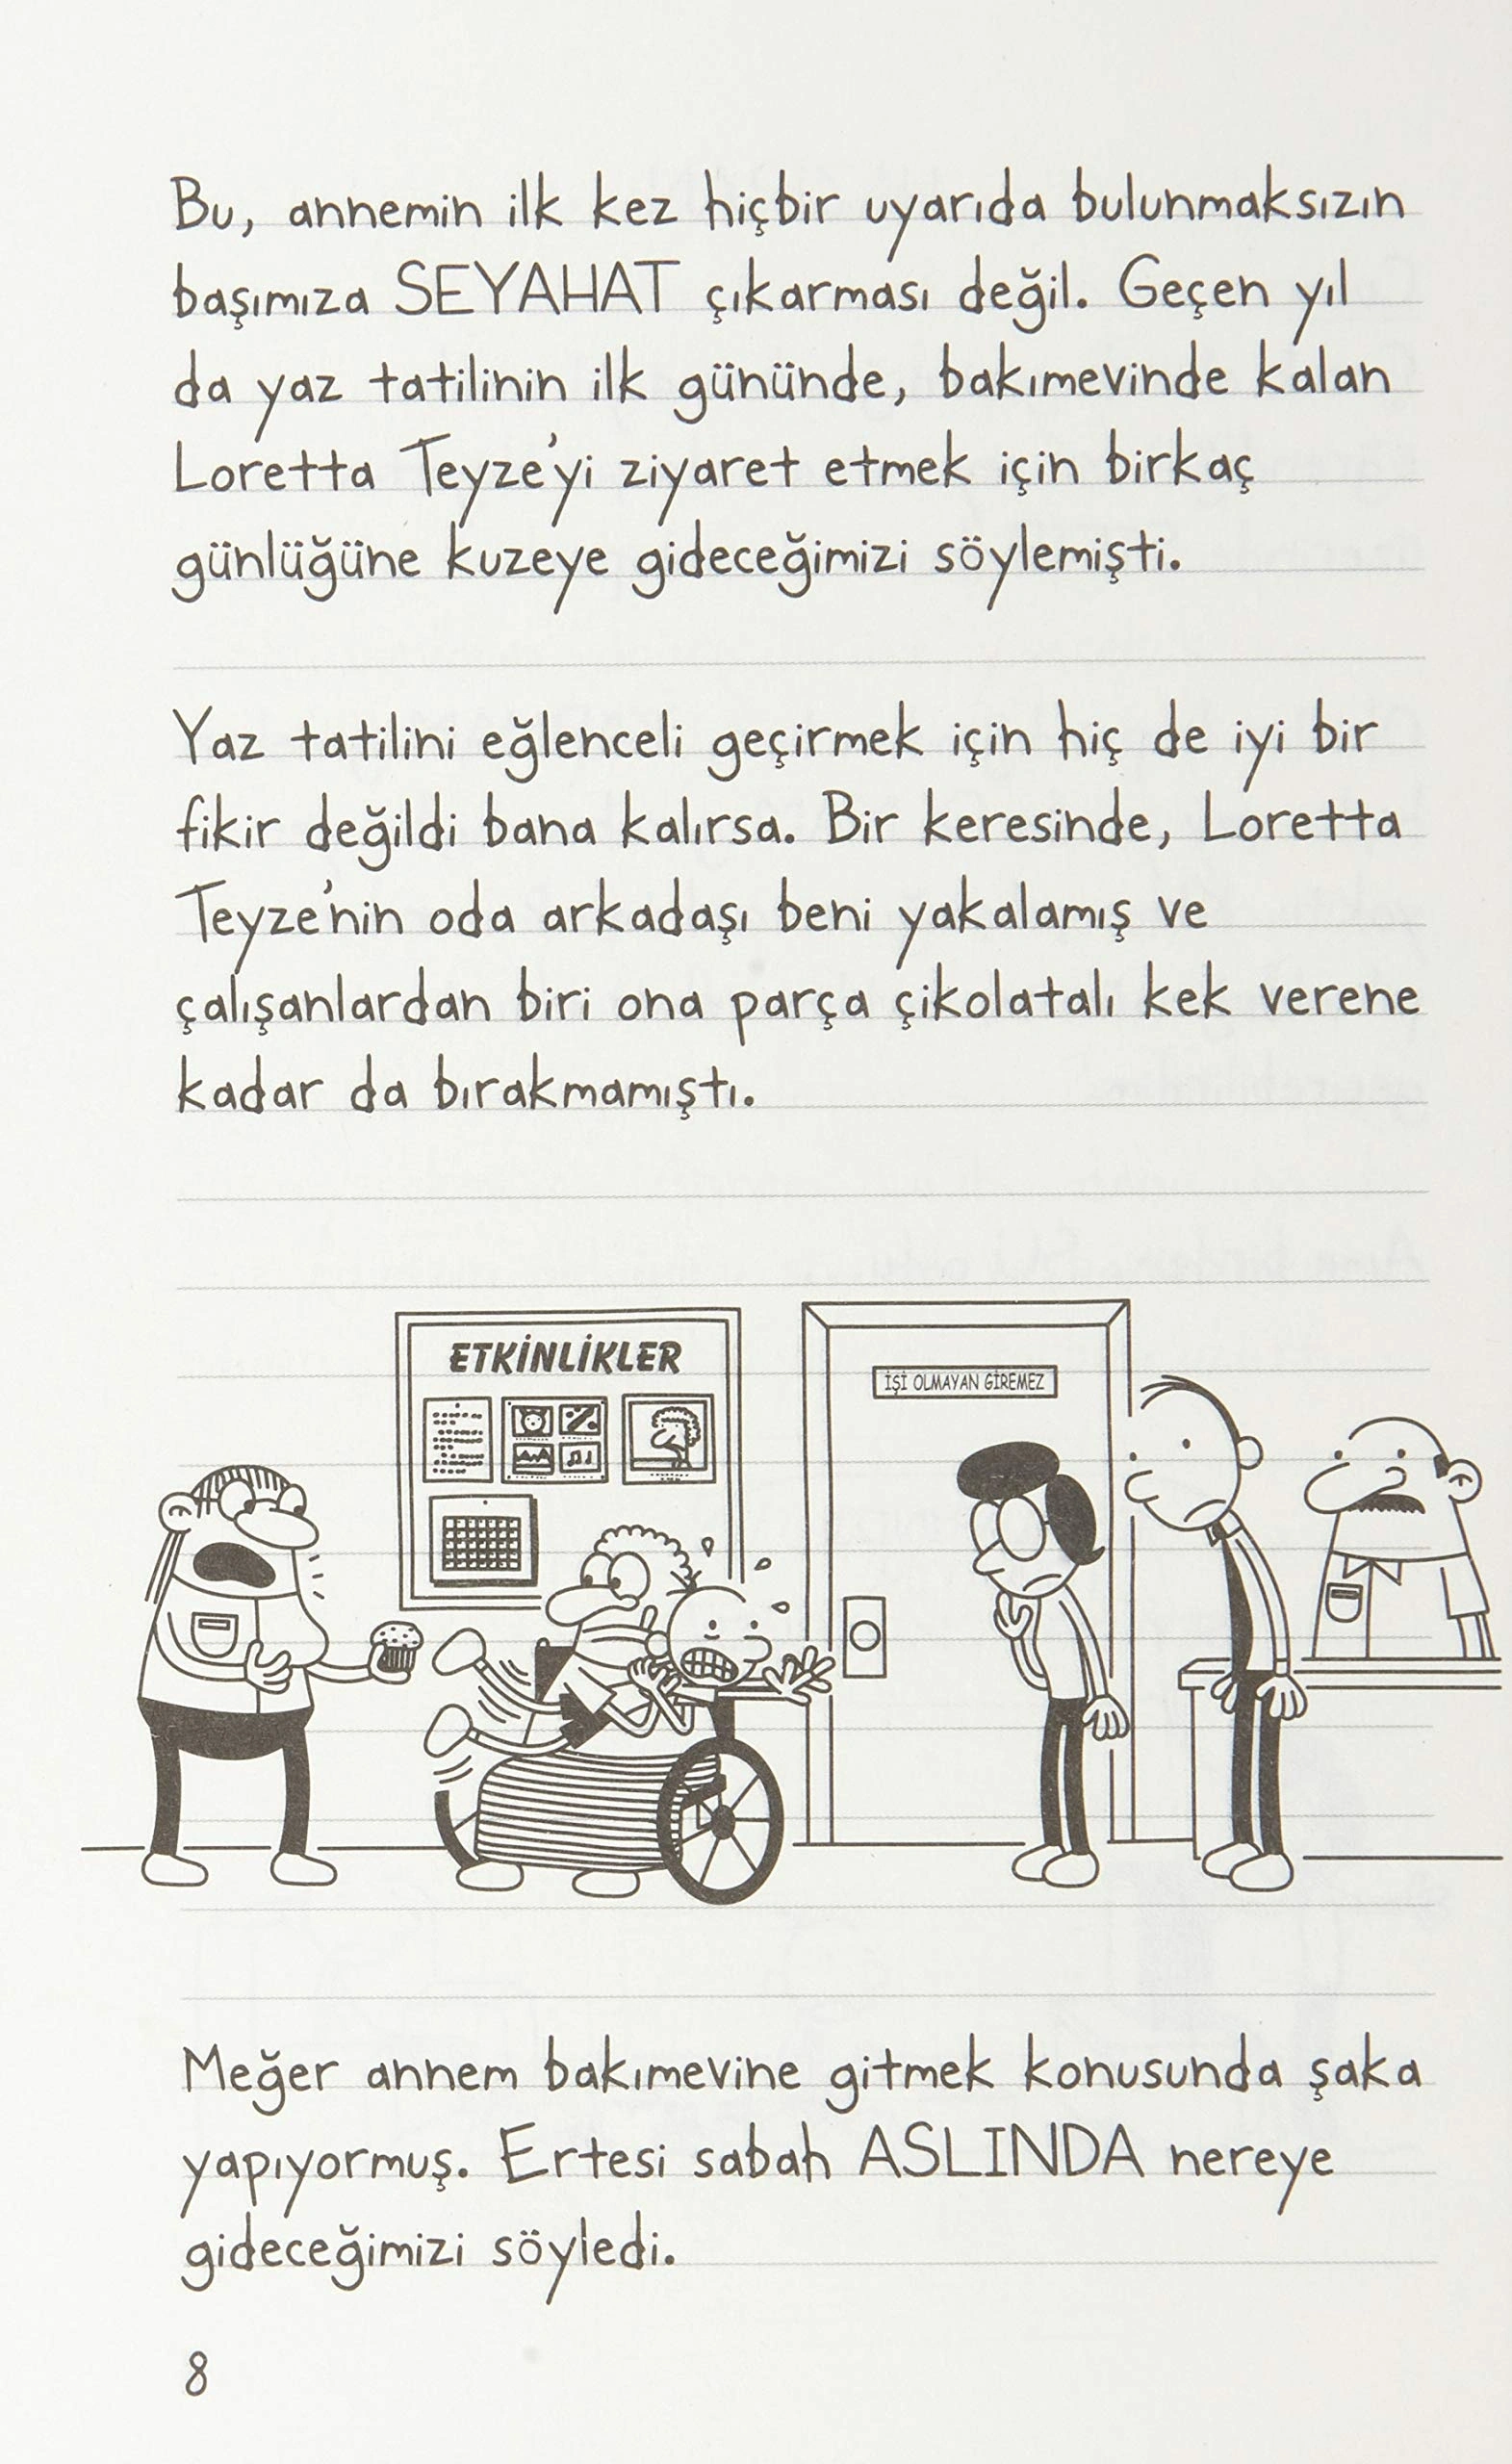 Bu, annemin ilk kez hiçbir uyarıda bulunmaksızın
başımıza SEYAHAT çıkarması değil. Geçen yıl
da yaz tatilinin ilk gününde, bakımevinde kalan
Loretta Teyze'yi ziyaret etmek için birkaç
günlüğüne kuzeye gideceğimizi söylemişti.
Yaz tatilini eğlenceli geçirmek için hiç de iyi bir
fikir değildi bana kalırsa. Bir keresinde, Loretta
Teyze'nin oda arkadaşı beni yakalamış ve
çalışanlardan biri ona parça çikolatalı kek verene
kadar da bırakmamıştı.
ETKİNLİKLER
İŞİ OLMAYAN GİREMEZ
Meğer annem bakımevine gitmek konusunda şaka
yapıyormuş. Ertesi sabah ASLINDA nereye
gideceğimizi söyledi.
8